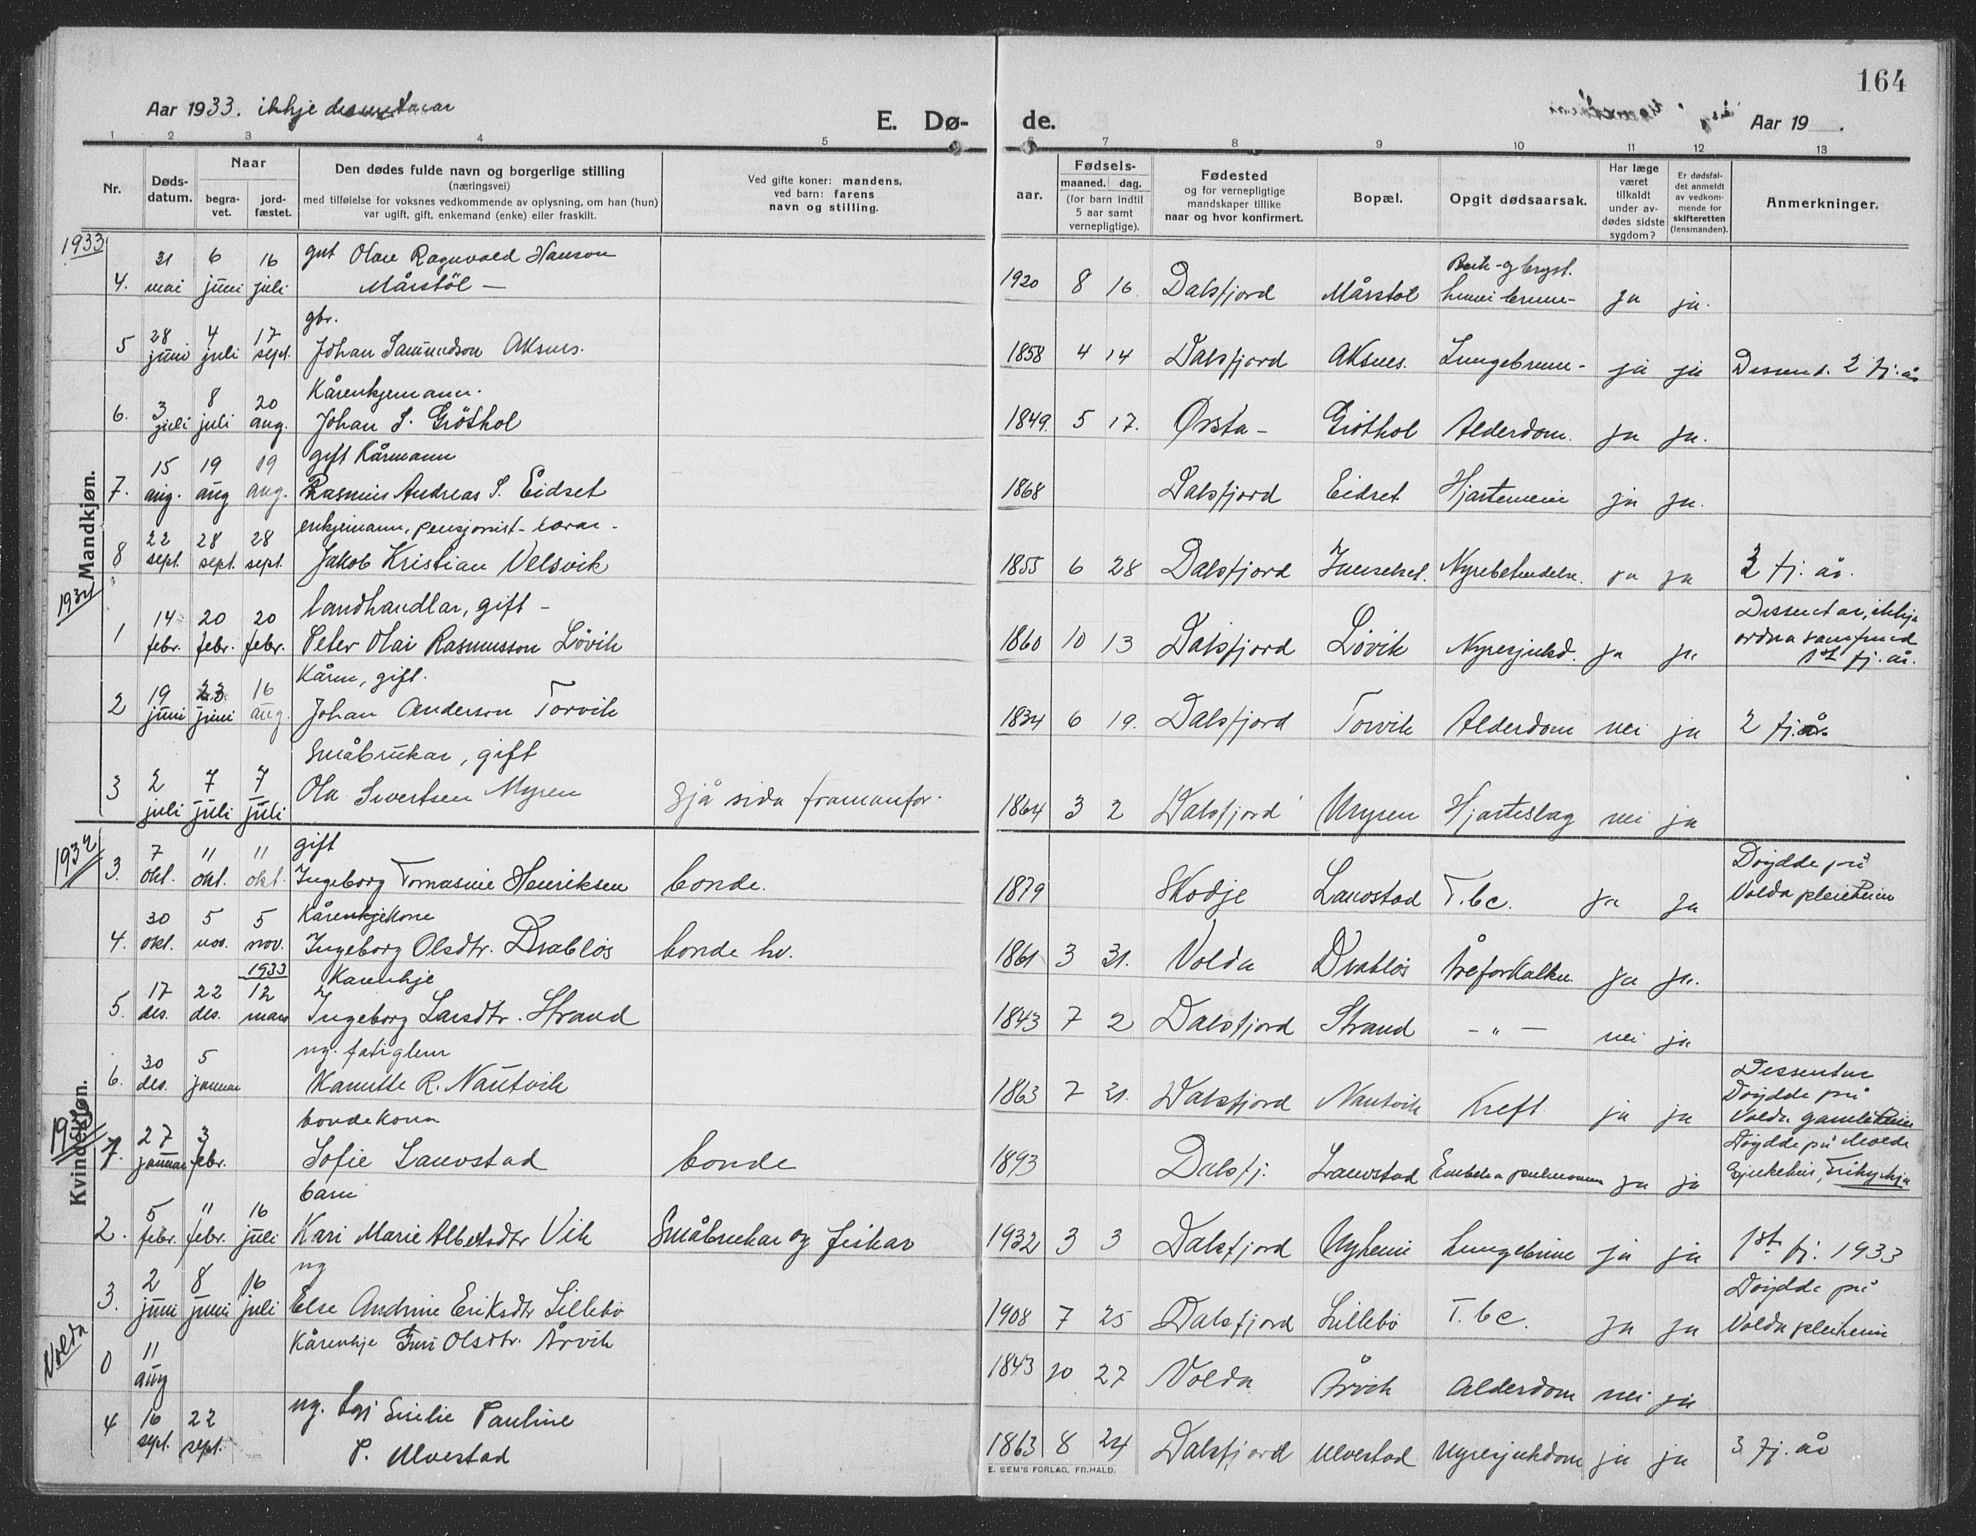 164
Aar 1933. ikkje dissentarar
E. Dø- de.
Aar 19
1 2 3 4 5 6 7 8 9 10 11 12 13
Nr.
Døds-datum.
Naar
begra-vet.
jord-fæstet.
Den dødes fulde navn og borgerlige stilling
(næringsvei)
med tilføielse for voksnes vedkommende av oplysning, om han (hun)
var ugift, gift, enkemand (enke) eller fraskilt.
Ved gifte koner: mandens,
ved barn: farens
navn og stilling.
aar.
Fødsels-
maaned. dag.
(for barn indtil
5 aar samt
vernepligtige).
Fødested
og for vernepligtige
mandskaper tillike
naar og hvor konfirmert.
Bopæl.
Opgit dødsaarsak.
Har læge
været
tilkaldt
under av-
dødes sidste
sygdom?
Er dødsfal-
det anmeldt
av vedkom-
mende for
skifteretten
(lensmanden).
Anmerkninger.
Mandkjøn.
1933
4. 31 mai 6 juni 16 juli gut Olav Ragnvald Hanson
Mårstöl — 1920 8 16. Dalsfjord Mårstöl ja ja.
5 28 juni 4 juli 17 sept. gbr.
Johan Samundson Aksnes. 1858 4 14 Dalsfjord Aksnes. Lungebrenn- ja ja Dissend. 2 tj. år
6. 3 juli 8 juli 20 aug. Kårenkjemann.
Johan S. Gröthol 1849. 5 17. Ørsta- Gröthol Alderdom. ja ja.
7. 15 aug. 19 aug 19 aug. gift Kårmann
Rasmus Andreas S. Eidset 1868 Dalsfjord Eidset Hjartemein ja ja.
8 22 sept. 28 sept. 28 sept. enkjemann, pensjonist-lærar-
Jakob Kristian Velsvik 1855 6 28 Dalsfjord Nyrebetendelse. ja ja 2 tj. år.
1934
1 14 febr. 20 febr. 20 febr. landhandlar, gift -
Peter Olai Rasmusson Lövik 1860 10 13 Dalsfjord Lövik Nyresjukd. ja ja Dissentar, ikkje
ordna samfund
1st tj. år.
2 19 juni 23 juni 16 aug. Kårm, gift.
Johan Anderson Torvik 1834 6 19. Dalsfjord Torvik Alderdom nei ja 2 tj. år.
3 2 juli 7 juli 7 juli Småbrukar, gift
Ola Sivertsen Myren Sjå sida framanfor. 1864 3 2 Dalsfjord Myren Hjarteslag nei ja
Kvindekjøn.
1932
3. 7 okt. 11 okt. 11 okt. gift
Ingeborg Tomasine Henriksen bonde. 1879 Skodje Lauvstad T.bc. ja ja Döydde på
Volda pleieheim
4. 30 okt. 5 nov. 5 nov. Kårenkjekone
Ingeborg Olsdtr. Drabløs bonde hv. 1861 3 31. Volda Drabløs Åreforkalkn. ja ja.
5. 17 des. 22 des. 1933 12 mars Kårenkje
Ingeborg Larsdtr. Strand 1843 7 2 Dalsfjord Strand — " — nei ja
6. 30 des. 5 januar ug. fatiglem
Kamille R. Nautvik 1863 7 21. Dalsfjord Nautvik Kreft ja ja Dissentar
Döydde på
Volda gamleheim
1933
1. 27 januar 3 febr. bondekona
Sofie Lauvstad bonde 1893 Dalsfj. Lauvstad ja ja Döydde på Molde
2. 5 febr. 11 febr. 16 juli barn
Kari Marie Albertsdtr Vik Småbrukar og fiskar 1932 3 3 Dalsfjord Nyheim Lungebrenn ja ja 1st tj. 1933
3. 2 juni 8 juni 16 juli ug
Else Andrine Eriksdtr Lillebö 1908 7 25 Dalsfjord Lillebö T.bc. ja ja Döydde på
Volda pleiheim
Volda
0 11 aug Kårenkje Guri Olsdtr. Årvik 1843 10 27 Volda Årvik Alderdom nei ja
4 16 sept. 22 sept. ug. Emilie Pauline
P. Ulvestad 1863 8 24 Dalsfjord Ulvestad Nyresjukdom ja ja 3 tj. år
E. SEM'S FORLAG, FR.HALD.